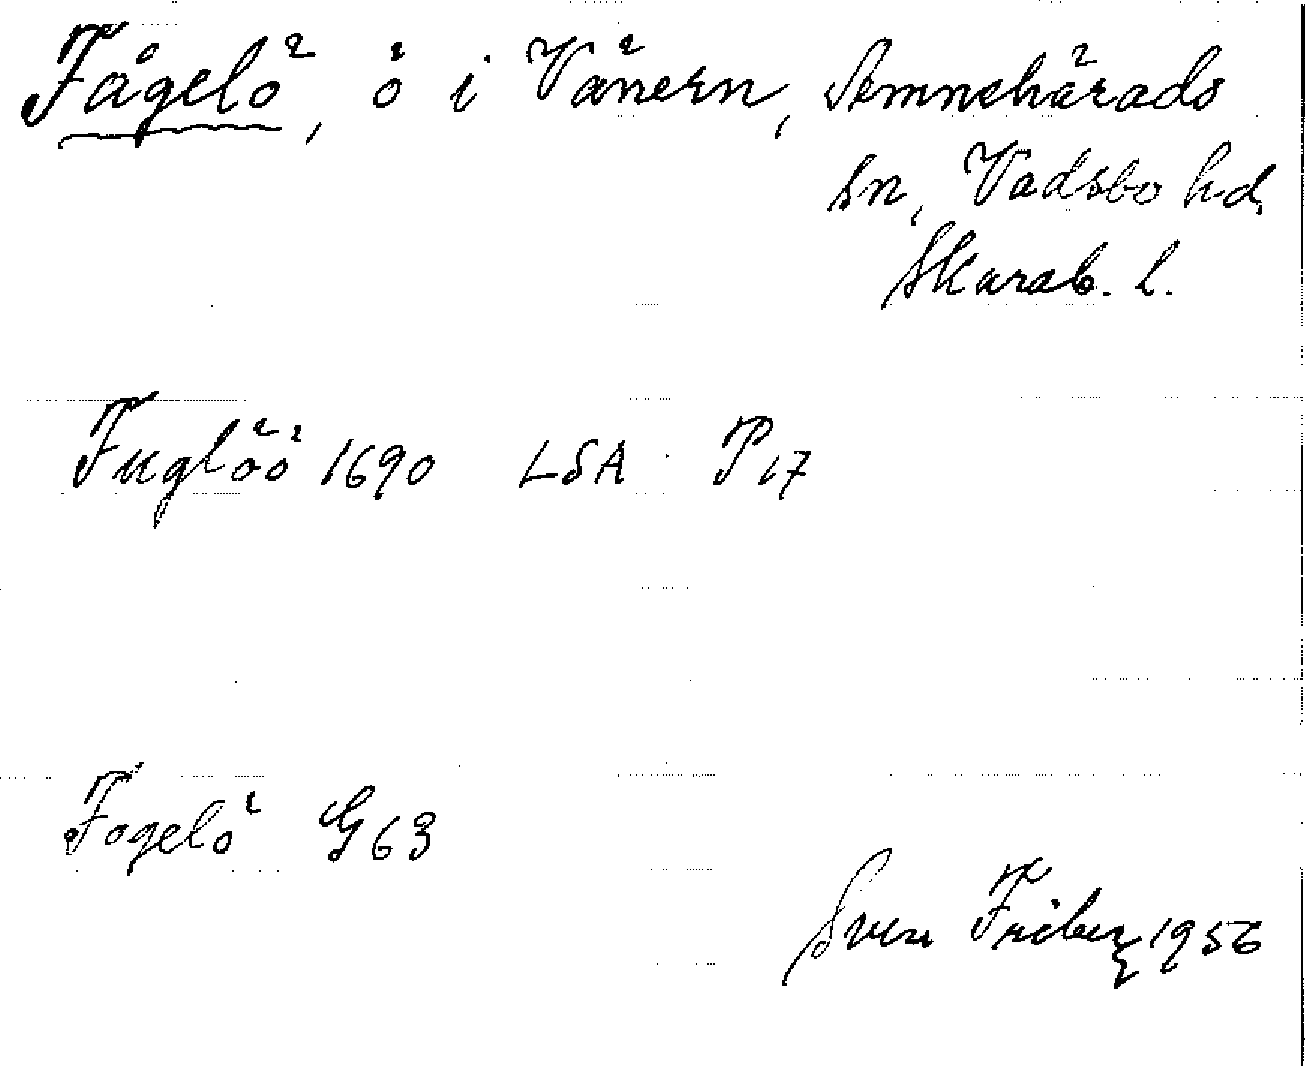 Fågelö, ö i Vänern, Amnehärads
sn, Vadsbo hd,
Skarab. l.
Fuglöö 1690 LSA P17
Fogelö G63
Sven Friberg 1956